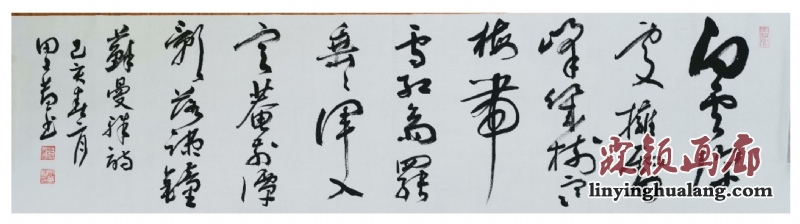 白雲深
處擁雷
峰幾樹寒
梅帶
雪紅齋罷
垂垂渾入
定菴前潭
影落疏鐘
蘇曼殊詩
己亥春月
霖颖画廊
linyinghualang.com